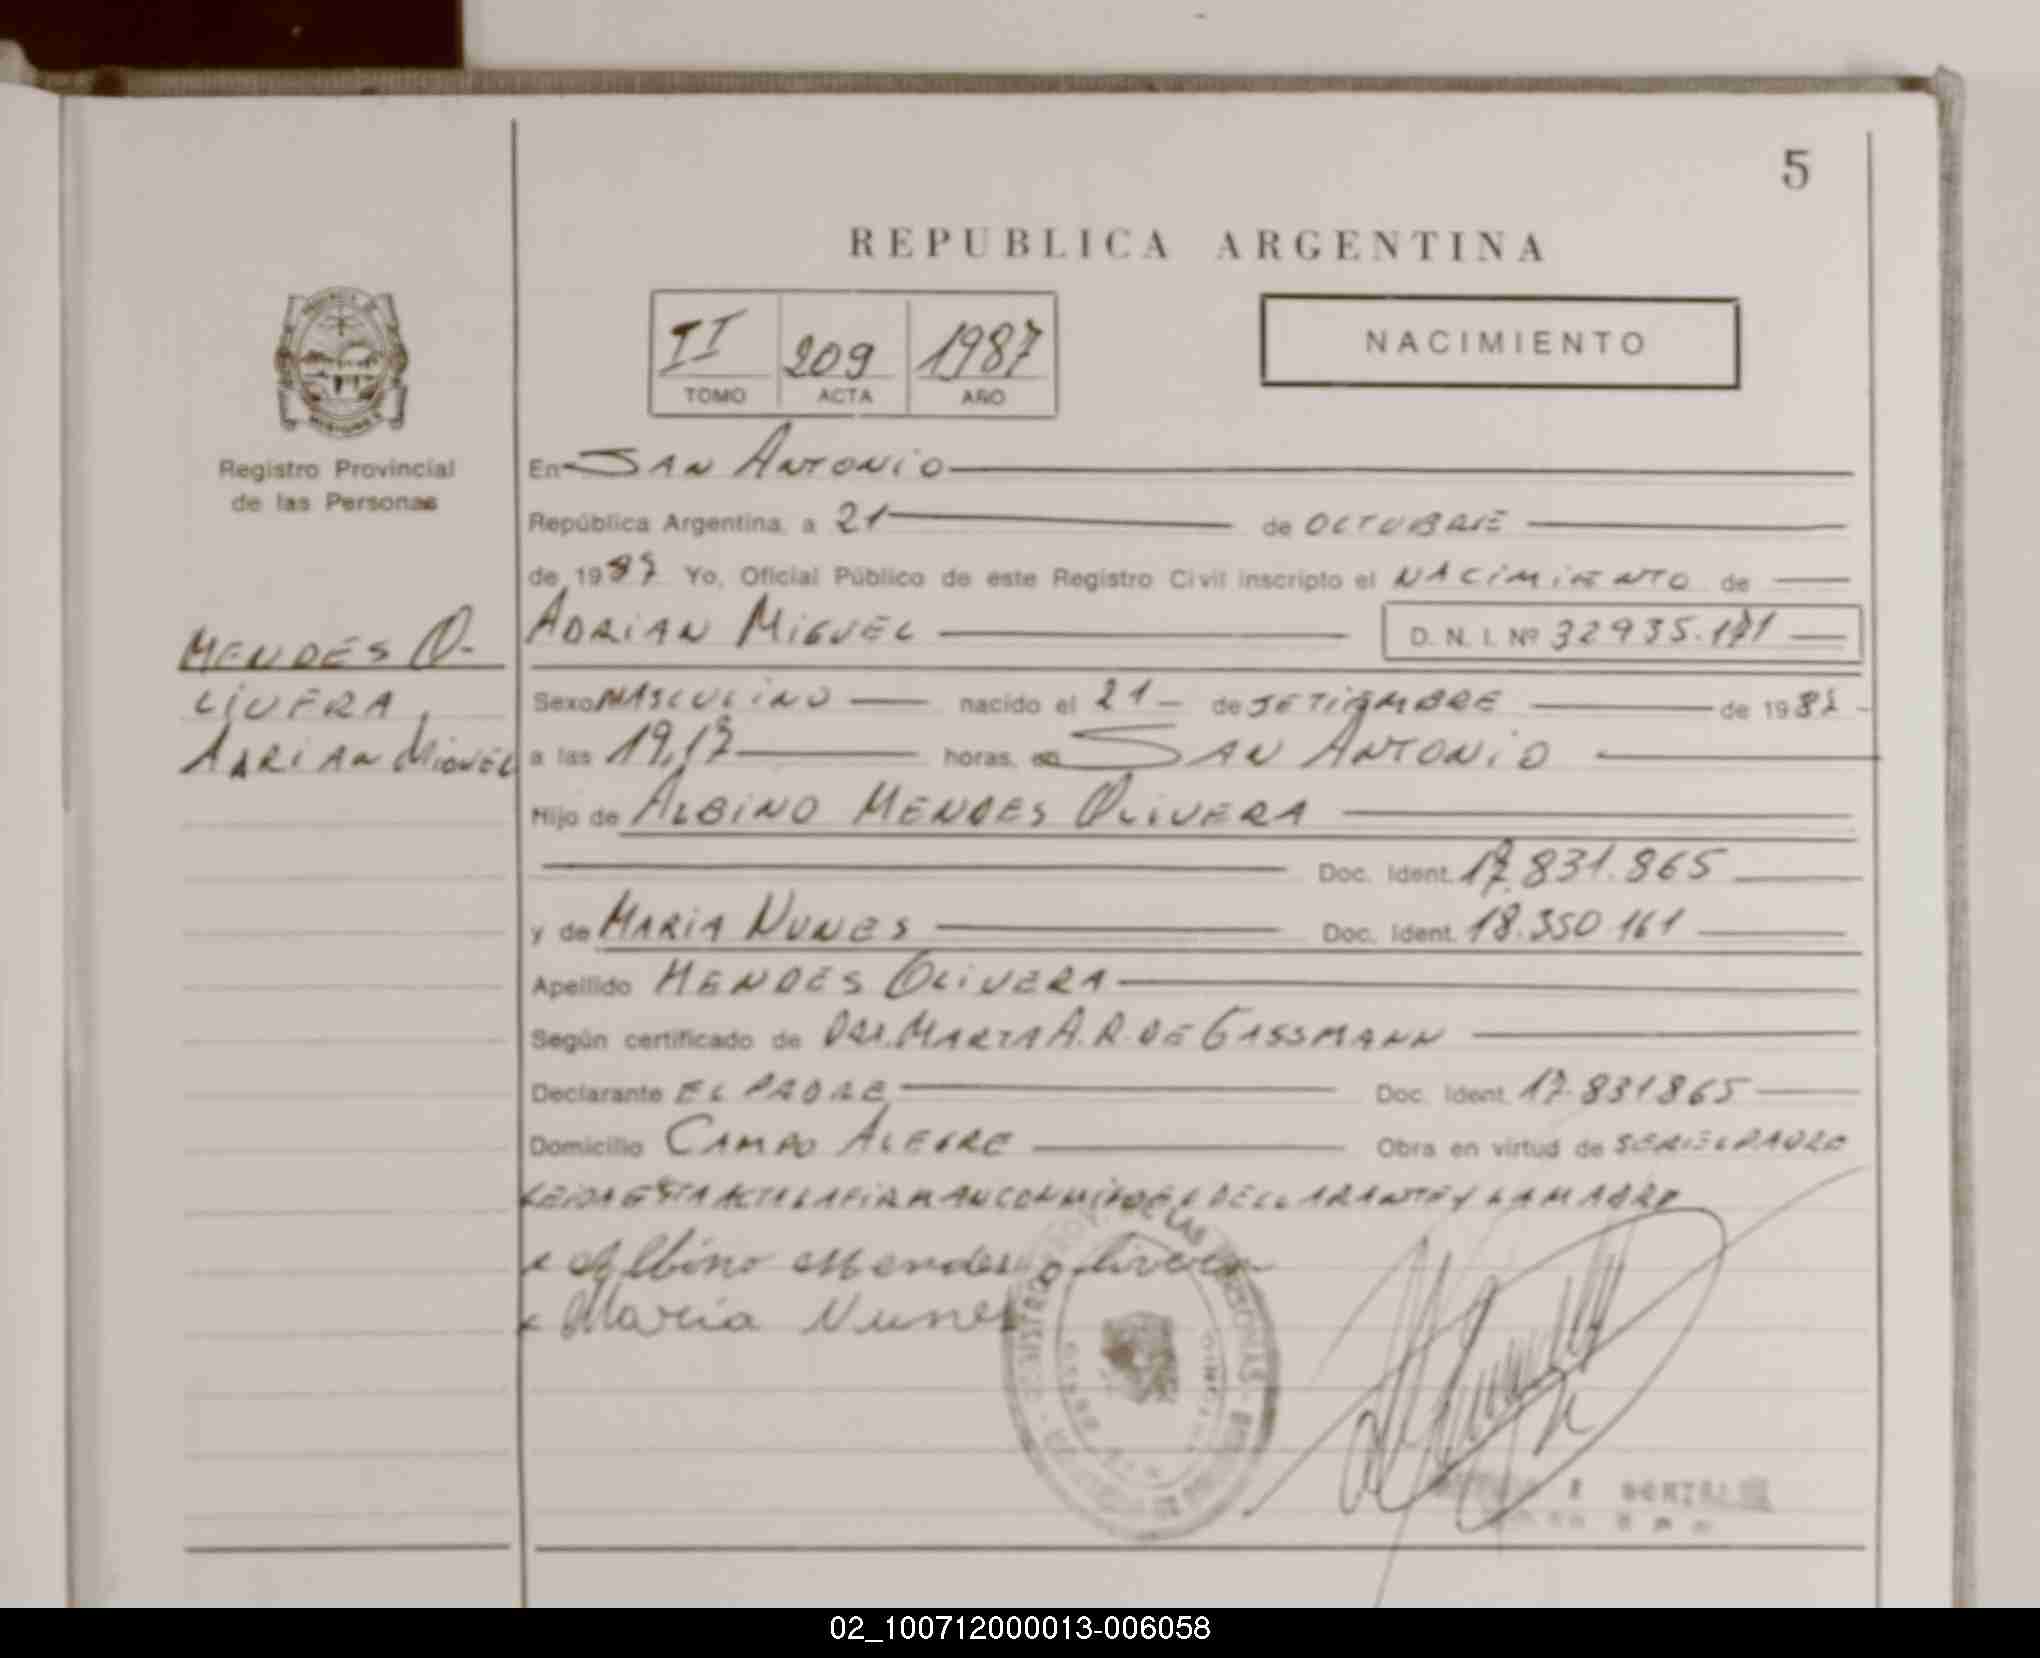 5
REPUBLICA ARGENTINA
II 209 1987
TOMO ACTA AÑO
NACIMIENTO
Registro Provincial
de las Personas
En SAN ANTONIO
República Argentina, a 21 de OCTUBRE
de 1987 Yo, Oficial Público de este Registro Civil inscripto el NACIMIENTO de
MENDES O-
LIVERA,
ADRIAN MIGUEL
ADRIAN MIGUEL D. N. I. Nº 32935.171
Sexo MASCULINO nacido el 21 de SETIEMBRE de 1987
a las 19,17 horas, en SAN ANTONIO
Hijo de ALBINO MENDES OLIVERA
Doc. Ident. 17.831.865
y de MARIA NUNES Doc. Ident. 18.350.161
Apellido MENDES OLIVERA
Según certificado de DRA. MARTA A. R. DE GASSMANN
Declarante EL PADRE Doc. Ident. 17.831865
Domicilio CAMPO ALEGRE Obra en virtud de SER EL PADRE
LEIDA ESTA ACTA LA FIRMAN CONMIGO EL DECLARANTE Y LA MADRE
x Albino Mendes Olivera
x Maria Nunes
02_100712000013-006058